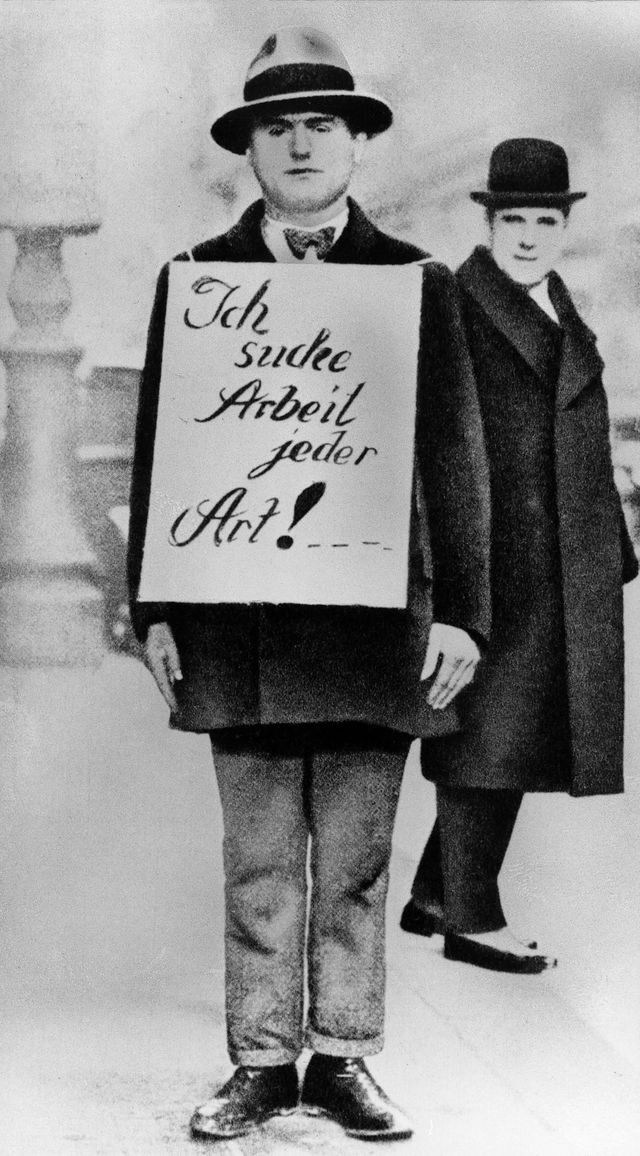 Ich
suche
Arbeit
jeder
Art!